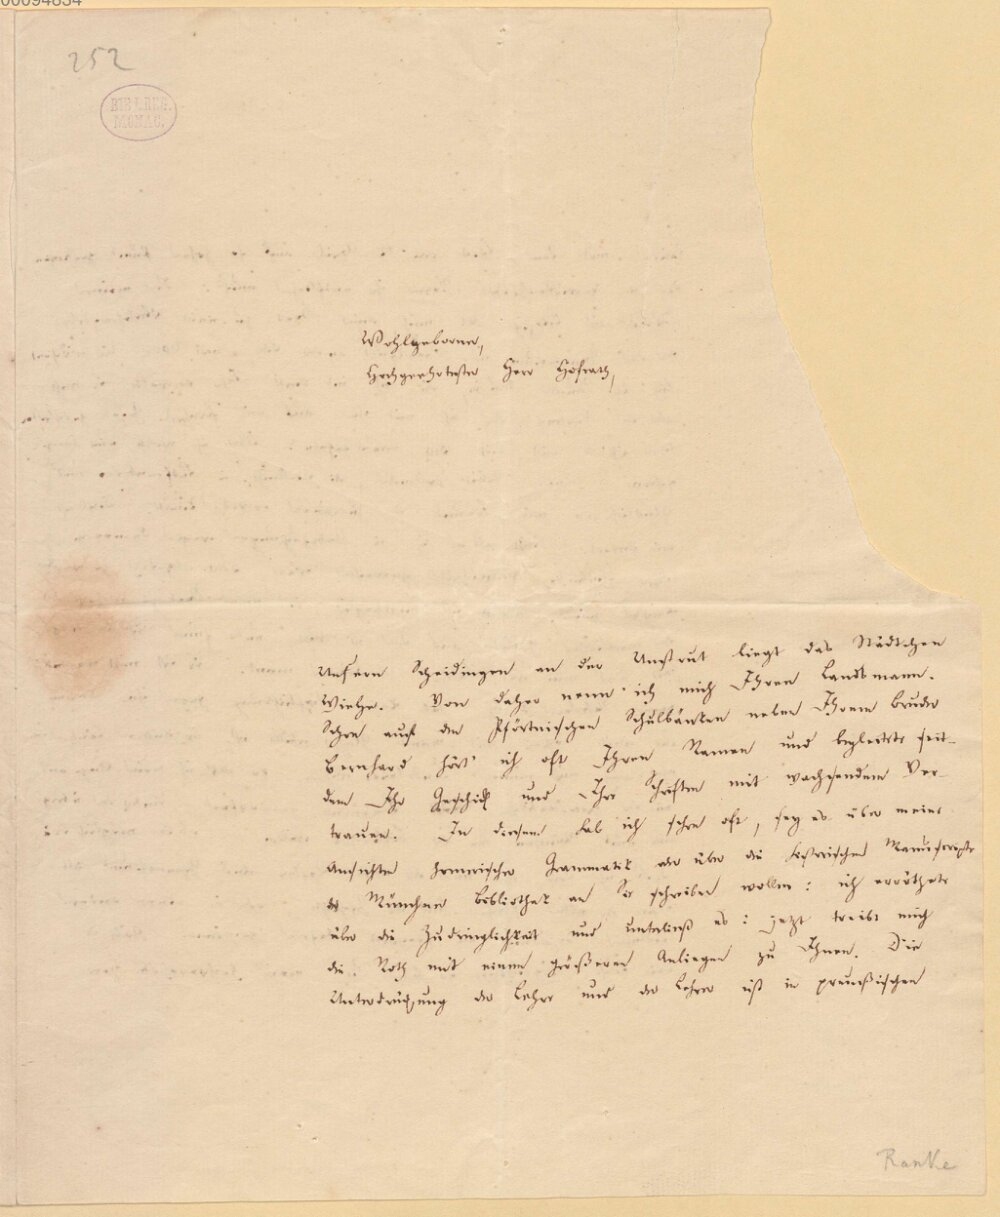 00094834
252
BIBL. REG.
MONAC.
Wohlgeborner,
Hochgeehrtester Herr Hofrath,
Unfern Scheidingen an der Unstrut liegt das Städtchen
Wiehe. Von daher nenn' ich mich Ihren Landsmann.
Schon auf den Pförtnischen Schulbänken neben Ihrem Bruder
Bernhard hört' ich oft Ihren Namen und begleitete seit-
dem Ihr Geschick und Ihre Schriften mit wachsendem Ver-
trauen. In diesem hab ich schon oft, sey es über meine
Ansichten homerischer Grammatik oder über die historischen Manuscripte
der Münchner Bibliothek an Sie schreiben wollen: ich erröthete
über die Zudringlichkeit und unterließ es: jetzt treibt mich
die Noth mit einem größeren Anliegen zu Ihnen. Die
Unterdrückung der Lehre und der Lehrer ist in preußischen
Ranke